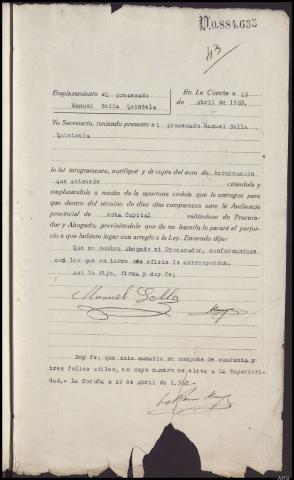 D.0.884.635
43
Emplazamiento al procesado
Manuel Solla Quintela
En La Coruña a 19
de Abril de 1933.
Yo Secretario, teniendo presente al procesado Manuel Solla
Quintela
le leí íntegramente, notifiqué y di copia del auto de terminacion
que antecede citándole y
emplazándole a medio de la oportuna cédula que le entregué para
que dentro del término de diez días comparezca ante la Audiencia
provincial de esta Capital valiéndose de Procura-
dor y Abogado, previniéndole que de no hacerlo le parará el perjui-
cio a que hubiere lugar con arreglo a la Ley. Enterado dijo:
Que no nombra Abogado ni Procurador, conformandose
con los que en turno de oficio le correspondan.
Asi lo dijo, firma y doy fe;
Manuel Solla
Doy fe; que este sumario se compone de cuarenta y
tres folios utiles, en cuyo numero se eleva a la Superiori-
dad.- La Coruña a 19 de Abril de 1.933.-